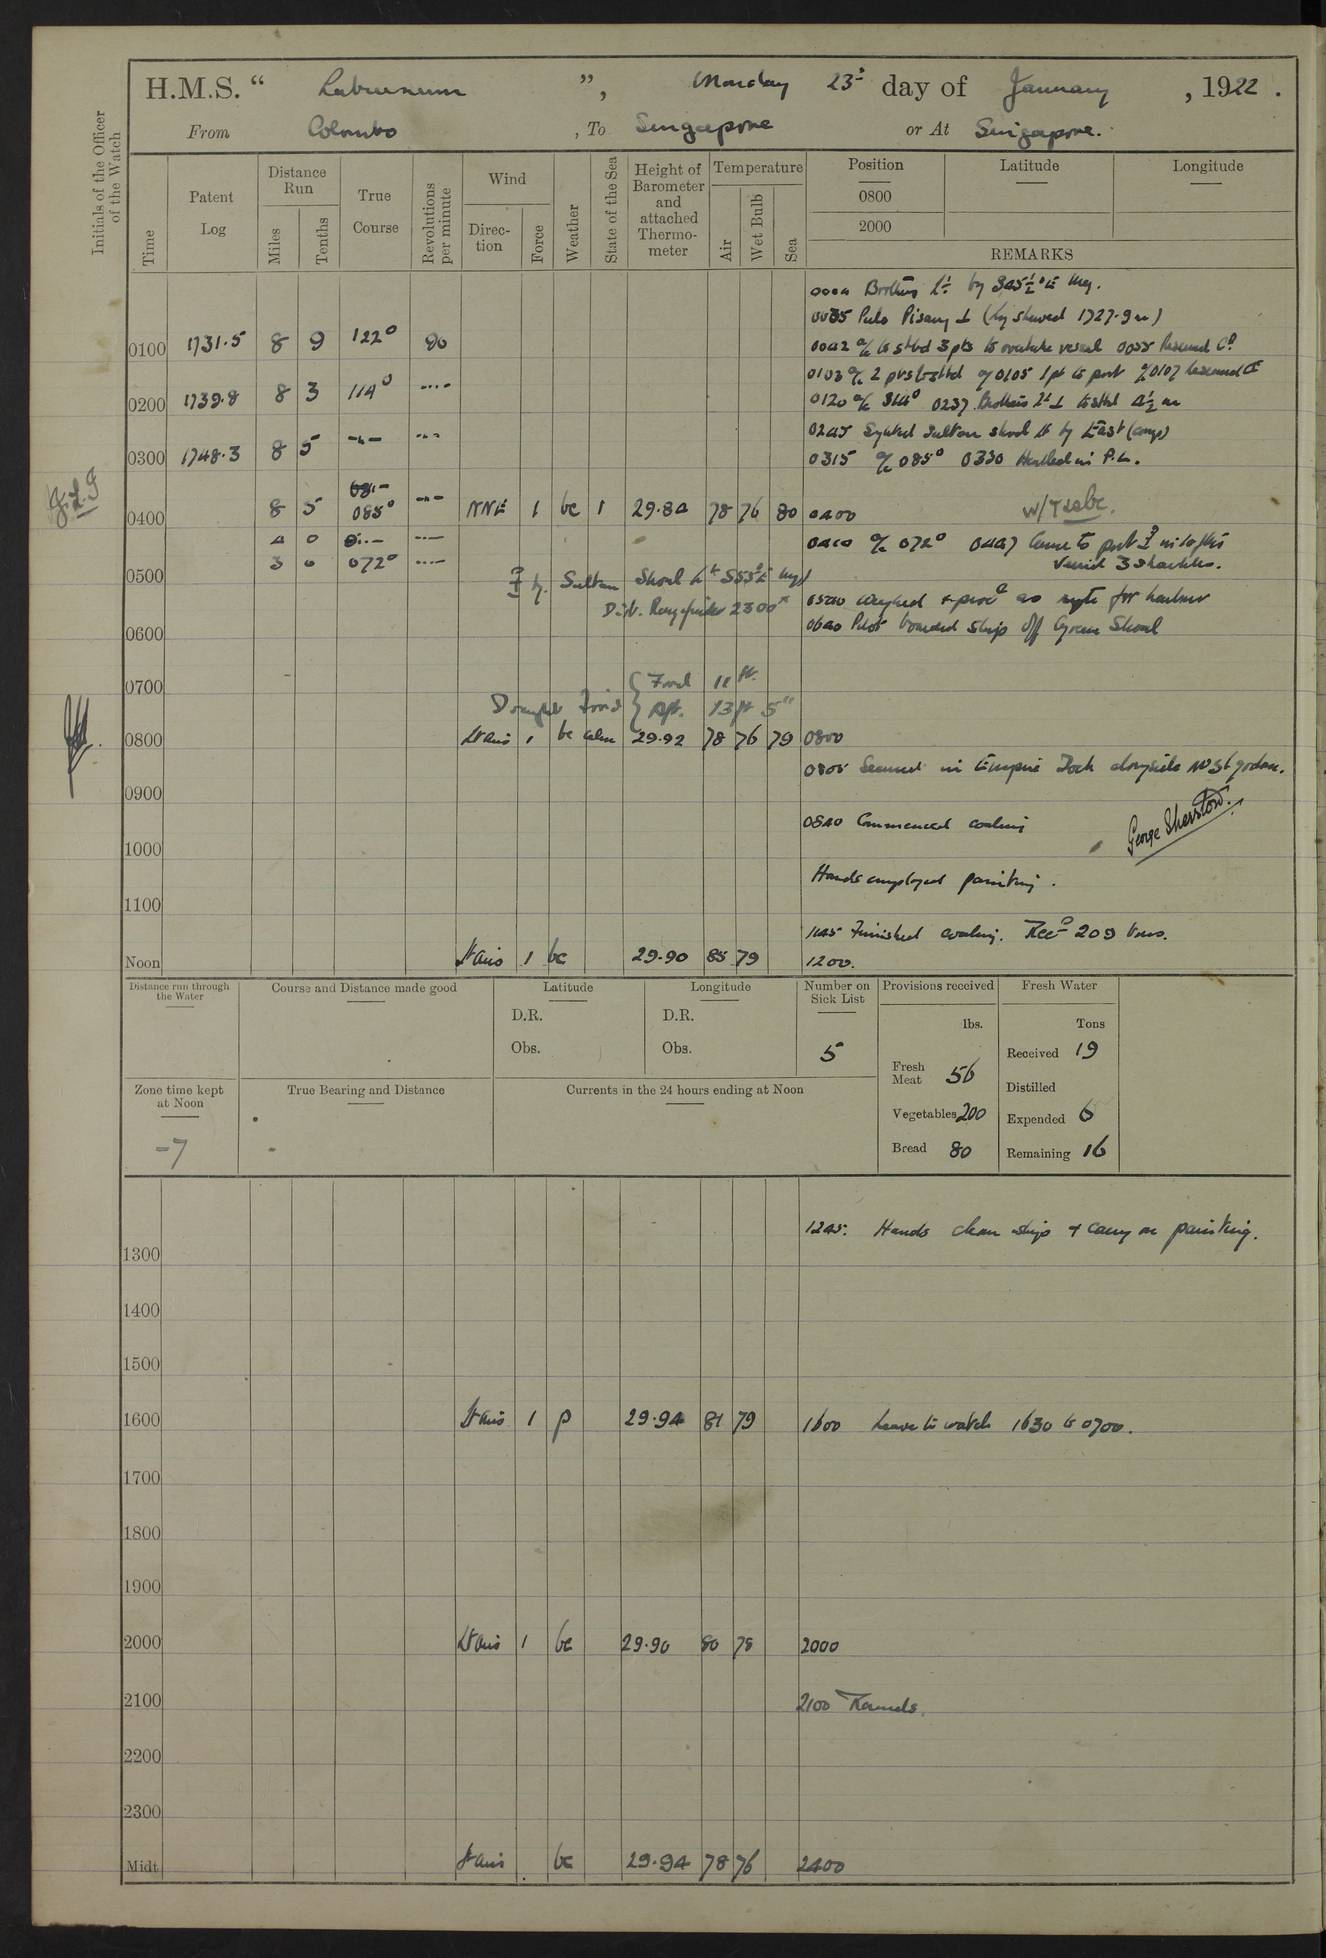 H.M.S. “ Laburnum ”, Monday 23rd day of January, 1922.
From Colombo, To Singapore or At Singapore.
Initials of the Officer of the Watch
Time
Patent Log
Distance Run
Miles
Tenths
True Course
Revolutions per minute
Wind
Direction
Force
Weather
State of the Sea
Height of Barometer and attached Thermometer
Temperature
Air
Wet Bulb
Sea
Position Latitude Longitude
0800
2000
REMARKS
0004 Brothers Lt by S45½°E Mag.
0035 Pulo Pisang ⊥ (by showed 1727.9 m)
0100 1731.5 8 9 122° 90 0042 a/c to stbd 3 pts to overtake vessel 0055 Resumed Co
0103 a/c 2 pts to stbd 0105 1 pt to port 0107 resumed Co
0200 1739.8 8 3 114° 0120 a/c 114° 0237 Brothers Lt ⊥ to stbd 4½ m
0245 Sighted Sultan shoal Lt by East
0300 1748.3 8 5 0315 a/c 085° 0330 Hauled in P.L.
J.L.F
0400 8 5 085° NNE 1 bc 1 29.84 78 76 80 0400
4 0 0410 a/c 072° 0447 Came to port in 10 fms
0500 3 0 072° Veered 3 shackles.
by Sultan Shoal Lt S53°E
Dist. Rangefinder 2300x
0520 Weighed & proc as req for harbour
0600 0640 Pilot boarded ship off Ajax Shoal
0700
Draught Ford { Ford 11 ft.
Aft. 13 ft 5"
0800 Lt airs 1 bc calm 29.92 78 76 79 0800
0805 Secured in Empire Dock alongside No 31 godown.
0900
0840 Commenced coaling
George Sherston.
1000
Hands employed painting.
1100
1145 Finished coaling. Recd 209 tons.
Noon Lt airs 1 bc 29.90 85 79 1200.
Distance run through the Water
Course and Distance made good
Latitude
D.R.
Obs.
Longitude
D.R.
Obs.
Number on Sick List
5
Provisions received
lbs.
Fresh Meat 56
Vegetables 200
Bread 80
Fresh Water
Tons
Received 19
Distilled
Expended 6
Remaining 16
Zone time kept at Noon
-7
True Bearing and Distance
Currents in the 24 hours ending at Noon
1245: Hands clean ship & carry on painting.
1300
1400
1500
1600 Lt airs 1 p 29.94 81 79 1600 Leave to watch 1630 to 0700.
1700
1800
1900
2000 Lt airs 1 bc 29.90 80 78 2000
2100 2100 Rounds.
2200
2300
Midt Lt airs bc 29.94 78 76 2400